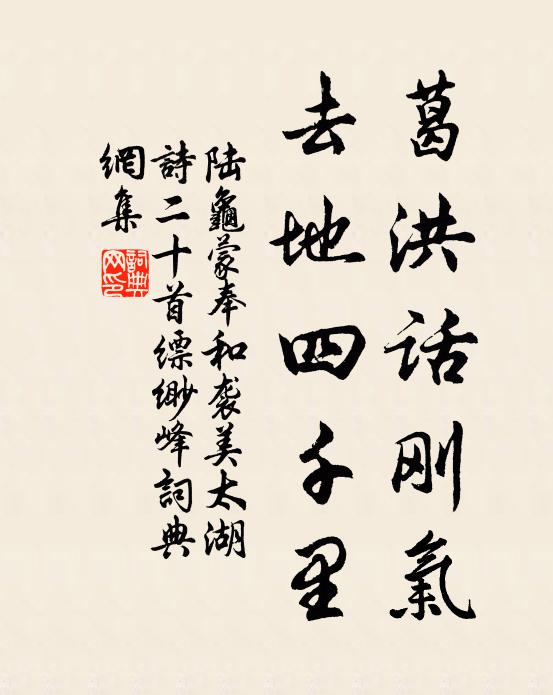 葛洪话刚氣
去地四千里
陆龜蒙奉和袭美太湖
詩二十首缥缈峰詞典
網集
詞典网印